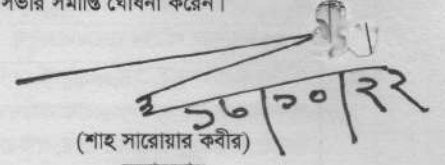 সভার সমাপ্তি ঘোষনা করেন।
১৬/১০/২২
(শাহ সারোয়ার কবীর)